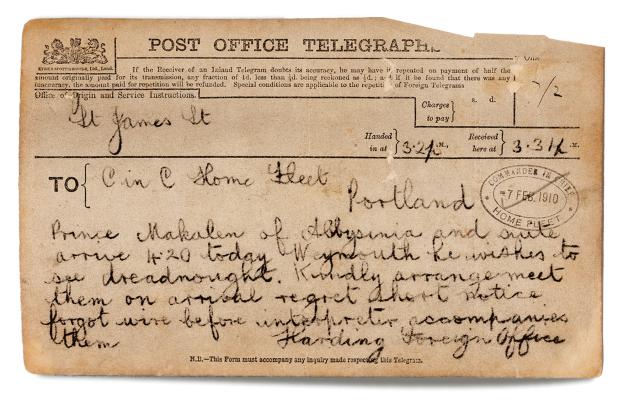 POST OFFICE TELEGRAPHS.
If the Receiver of an Inland Telegram doubts its accuracy, he may have it repeated on payment of half the
amount originally paid for its transmission, any fraction of 1d. less than ½d. being reckoned as ½d.; and if it be found that there was any
inaccuracy, the amount paid for repetition will be refunded. Special conditions are applicable to the repetition of Foreign Telegrams
Office of Origin and Service Instructions.
St James St
Charges
to pay
s. d.
7/2
Handed
in at
3.21 P.M.
Received
here at
3.31 P.M.
TO
C in C Home Fleet
Portland
COMMANDER IN CHIEF
-7 FEB. 1910
HOME FLEET
Prince Makalen of Abbysinia and suite
arrive 4.20 today Weymouth he wishes to
see dreadnought. Kindly arrange meet
them on arrival regret short notice
forgot wire before interpreter accompanies
them Harding Foreign Office
N.B.—This Form must accompany any inquiry made respecting this Telegram.